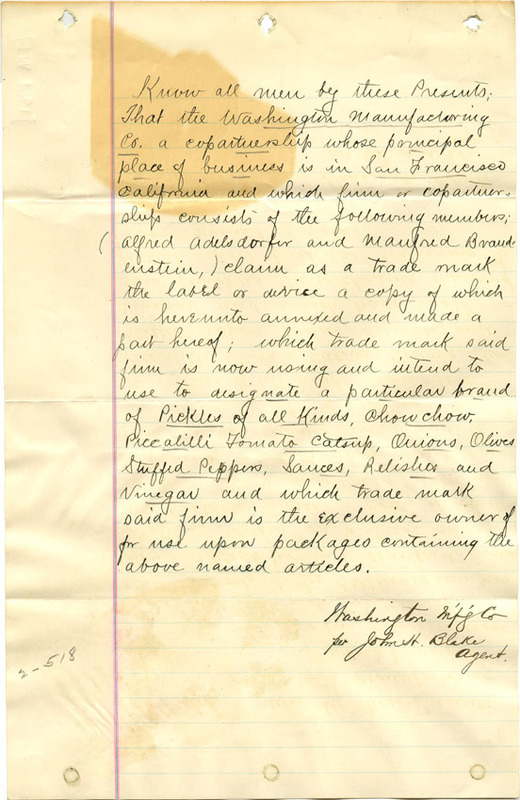 Know all men by these Presents;
That the Washington Manufactoring
Co. a copartnership whose principal
place of business is in San Francisco
California and which firm or copartner-
ship consists of the following members;
(Alfred Adelsdorfer and Manfred Brand-
enstein,) claim as a trade mark
the label or device a copy of which
is hereunto annexed and made a
part hereof; which trade mark said
firm is now using and intend to
use to designate a particular brand
of Pickles of all Kinds, Chow chow,
Piccalilli Tomato Catsup, Onions, Olives
Stuffed Peppers, Sauces, Relishes and
Vinegar and which trade mark
said firm is the exclusive owner of
for use upon packages containing the
above named articles.
Washington M'f'g Co
per John H. Blake
Agent.
2-518